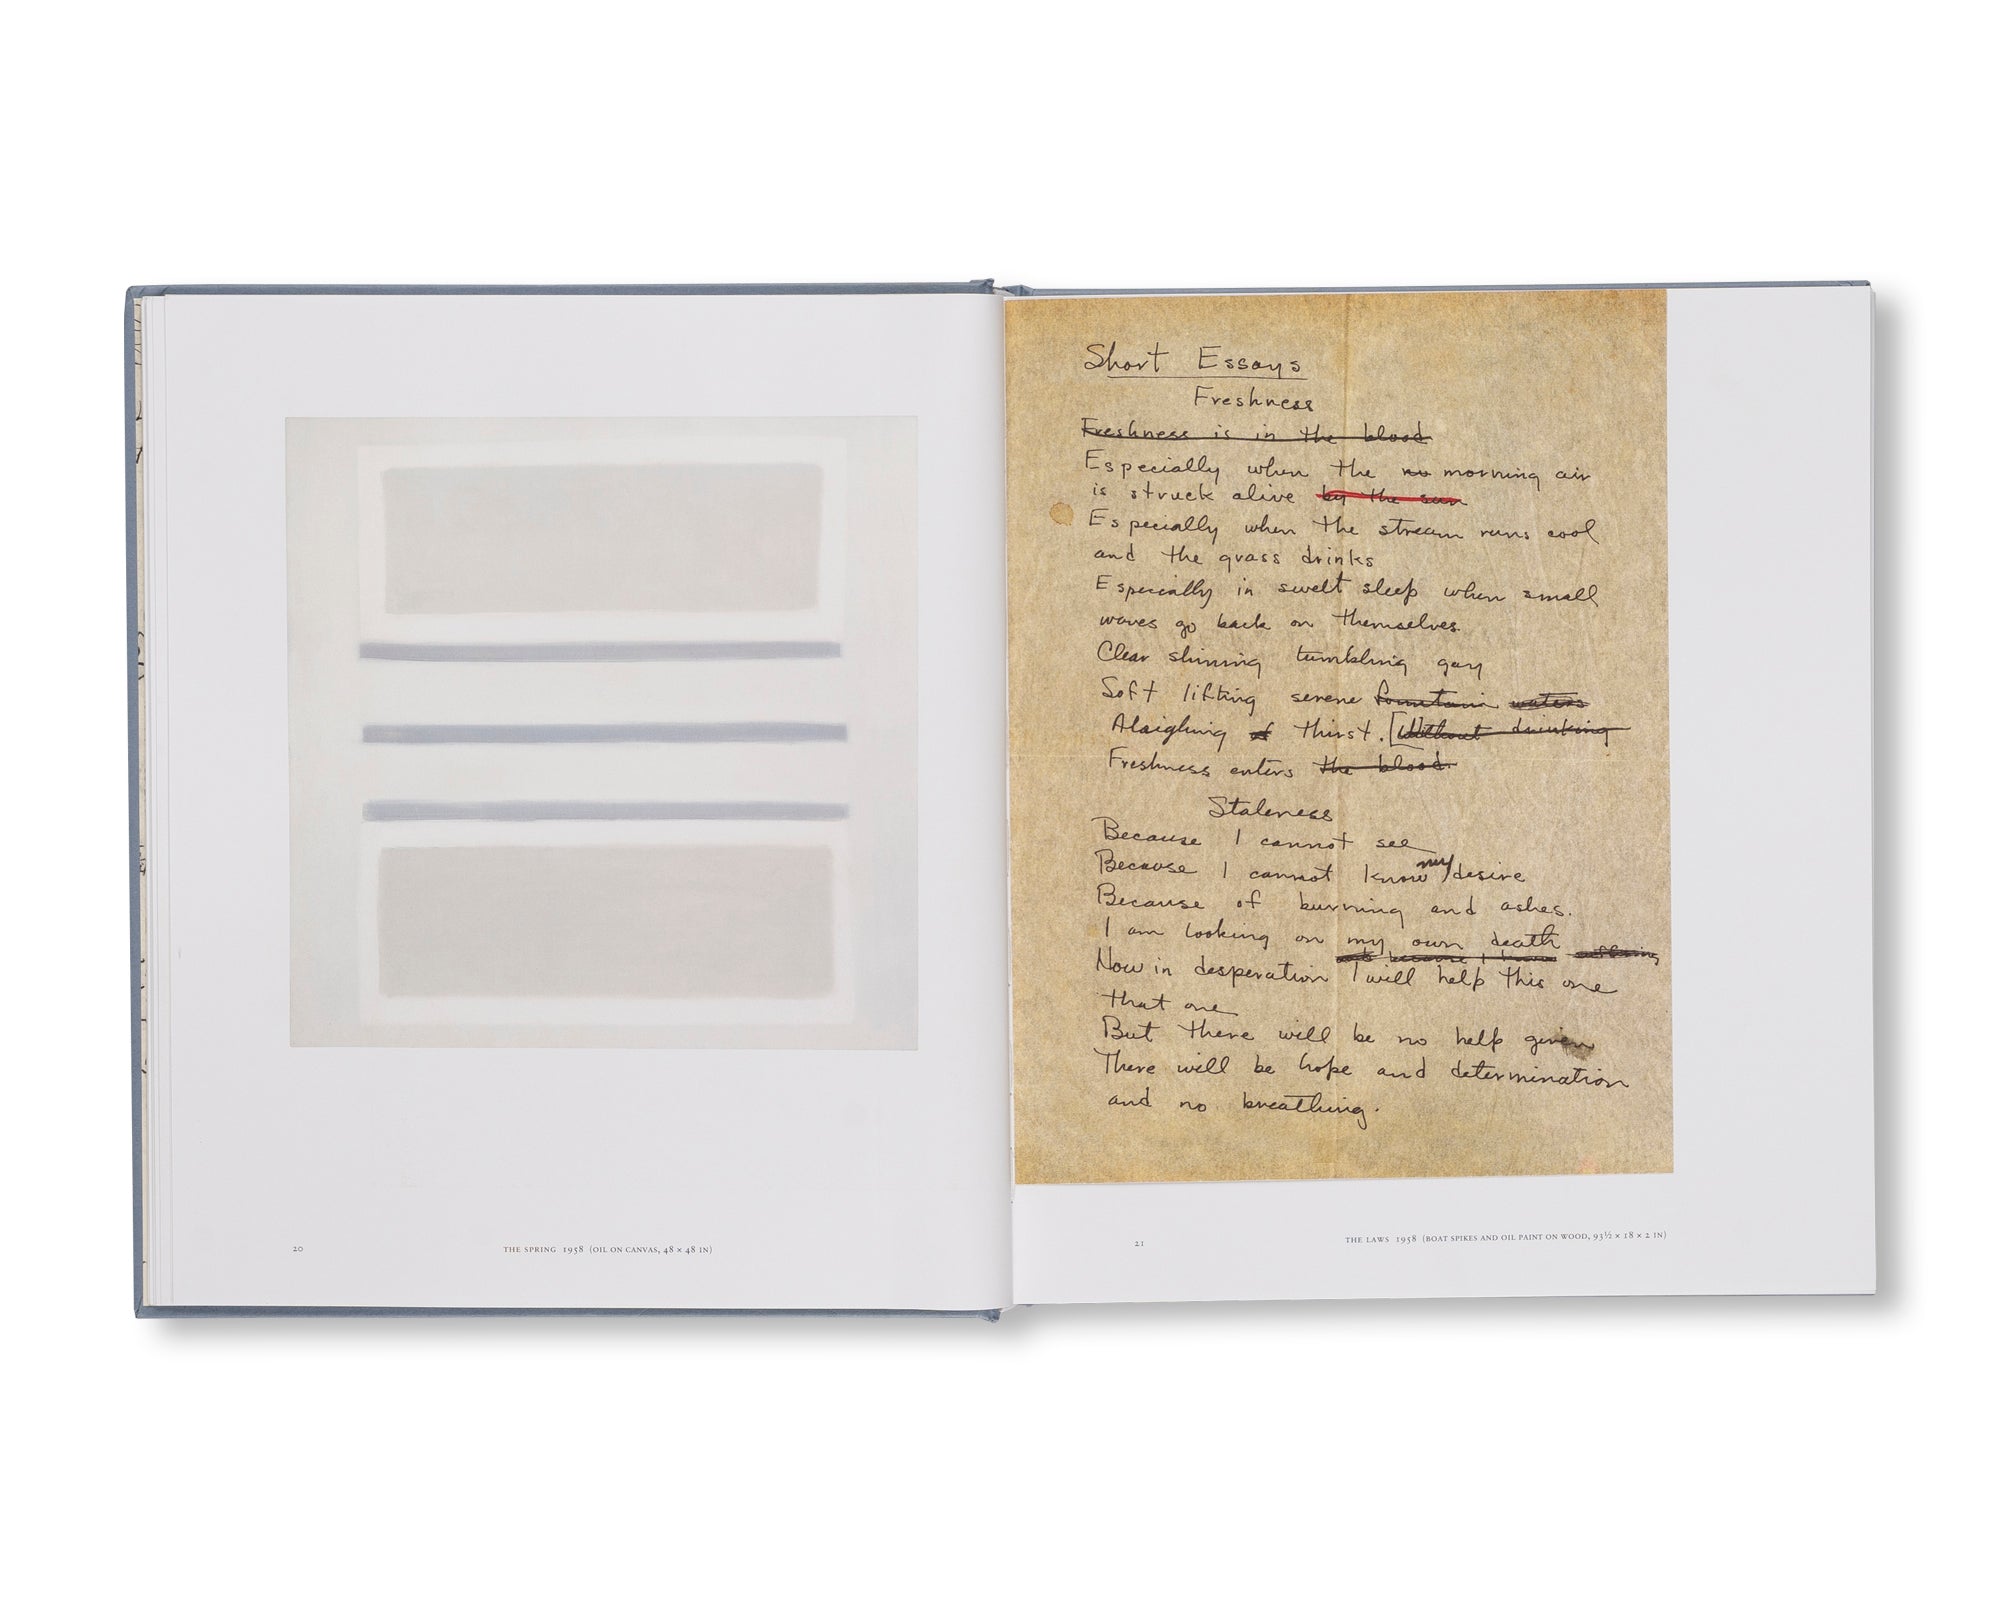 20
THE SPRING 1958 (OIL ON CANVAS, 48 × 48 IN)
Short Essays
Freshness
Freshness is in the blood
Especially when the mo morning air
is struck alive by the sun
Especially when the stream runs cool
and the grass drinks
Especially in swelt sleep when small
waves go back on themselves.
Clear shining tumbling gay
Soft lifting serene fountain waters
Alaighing of thirst. [Without drinking
Freshness enters the blood.
Staleness
Because I cannot see
Because I cannot know my desire
Because of burning and ashes.
I am looking on my own death suffering
because I know
Now in desperation I will help this one
that one
But there will be no help given
There will be hope and determination
and no breathing.
21
THE LAWS 1958 (BOAT SPIKES AND OIL PAINT ON WOOD, 93½ × 18 × 2 IN)